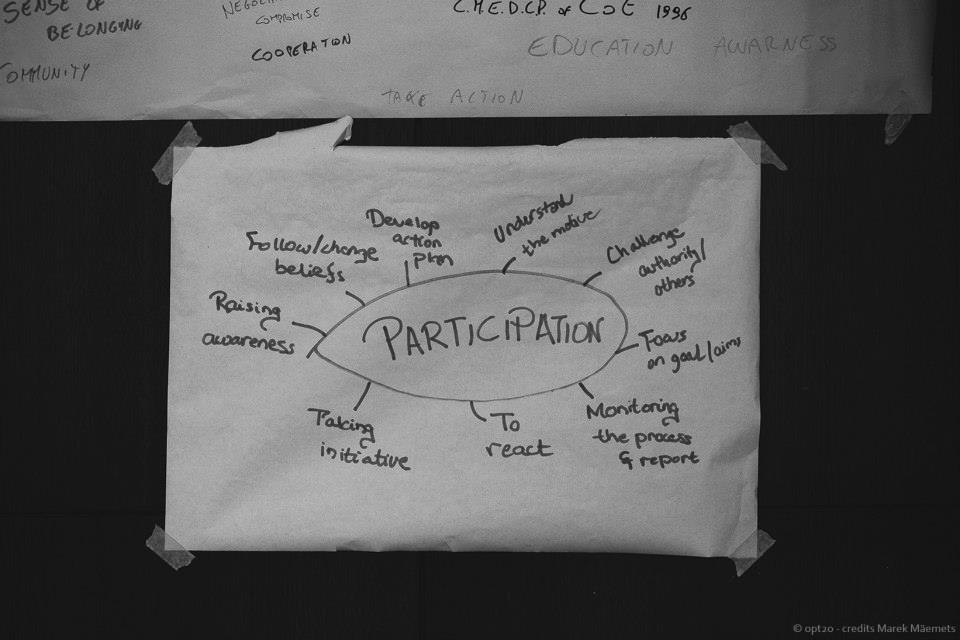 SENSE OF
BELONGING
COMPROMISE
COOPERATION
COMMUNITY
C.M.E.D.C.P. of CoE 1996
EDUCATION AWARNESS
TAKE ACTION
Develop
action
plan
Understand
the motive
Follow/change
beliefs
Challenge
authority/
others
Raising
awareness
PARTICIPATION
Focus
on goal/aims
Taking
initiative
To
react
Monitoring
the process
& report
© opt20 - credits Marek Mäemets